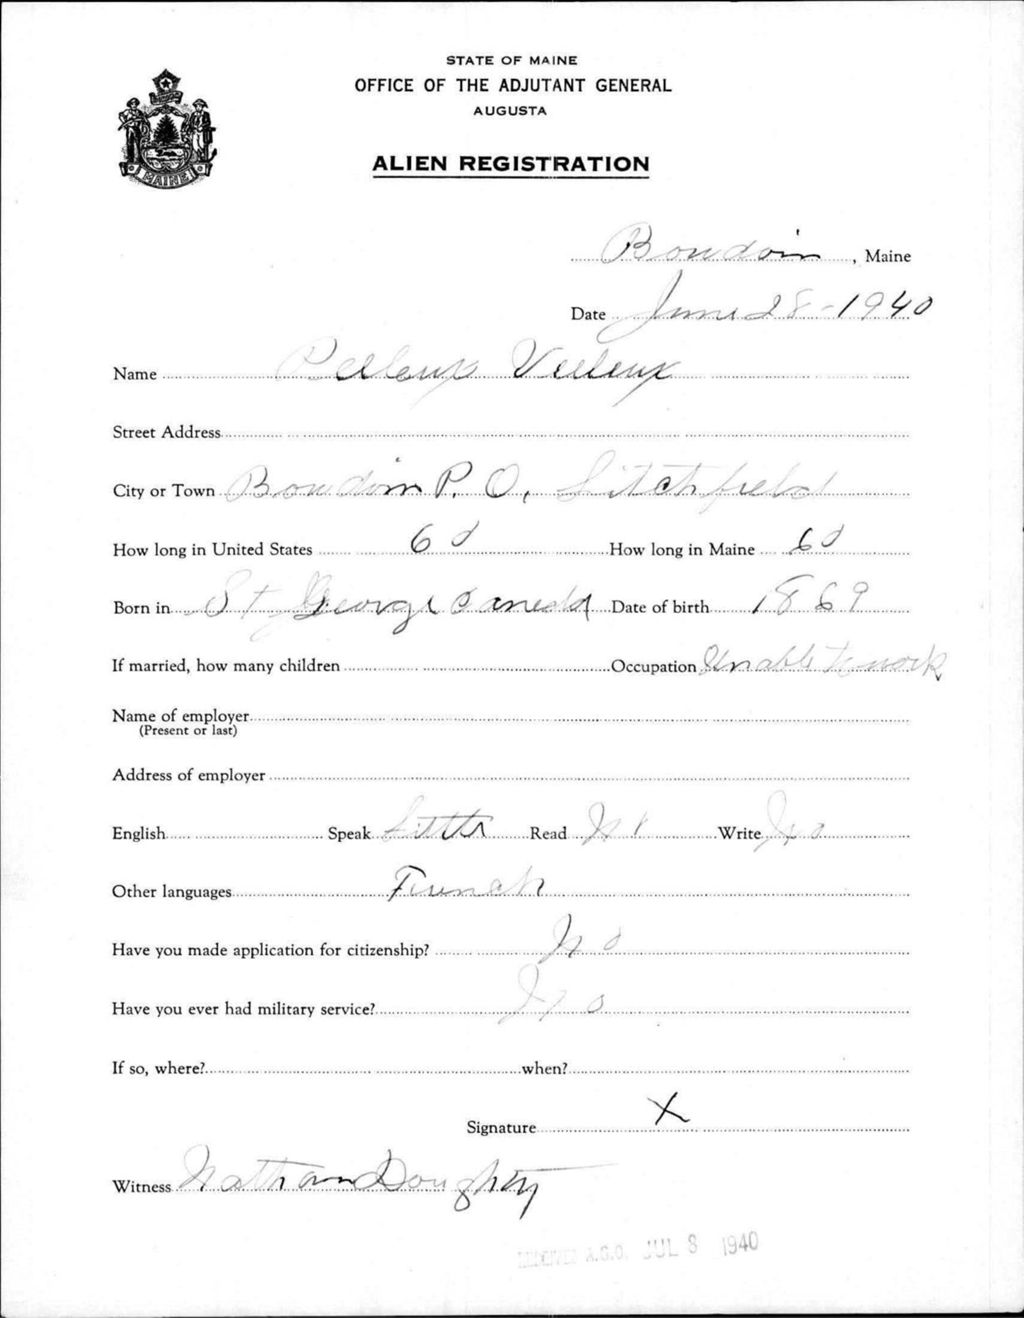 STATE OF MAINE
OFFICE OF THE ADJUTANT GENERAL
AUGUSTA
MAINE
ALIEN REGISTRATION
Bowdoin, Maine
Date June 28-1940
Name Veilleux
Street Address
City or Town Bowdoin P. O, Litchfield
How long in United States 60 How long in Maine 60
Born in St George Canada Date of birth 1869
If married, how many children Occupation Unable to work
Name of employer
(Present or last)
Address of employer
English Speak Little Read No Write No
Other languages French
Have you made application for citizenship? No
Have you ever had military service? No
If so, where? when?
Signature X
Witness Nathan Doughty
RECEIVED A.G.O. JUL 8 1940